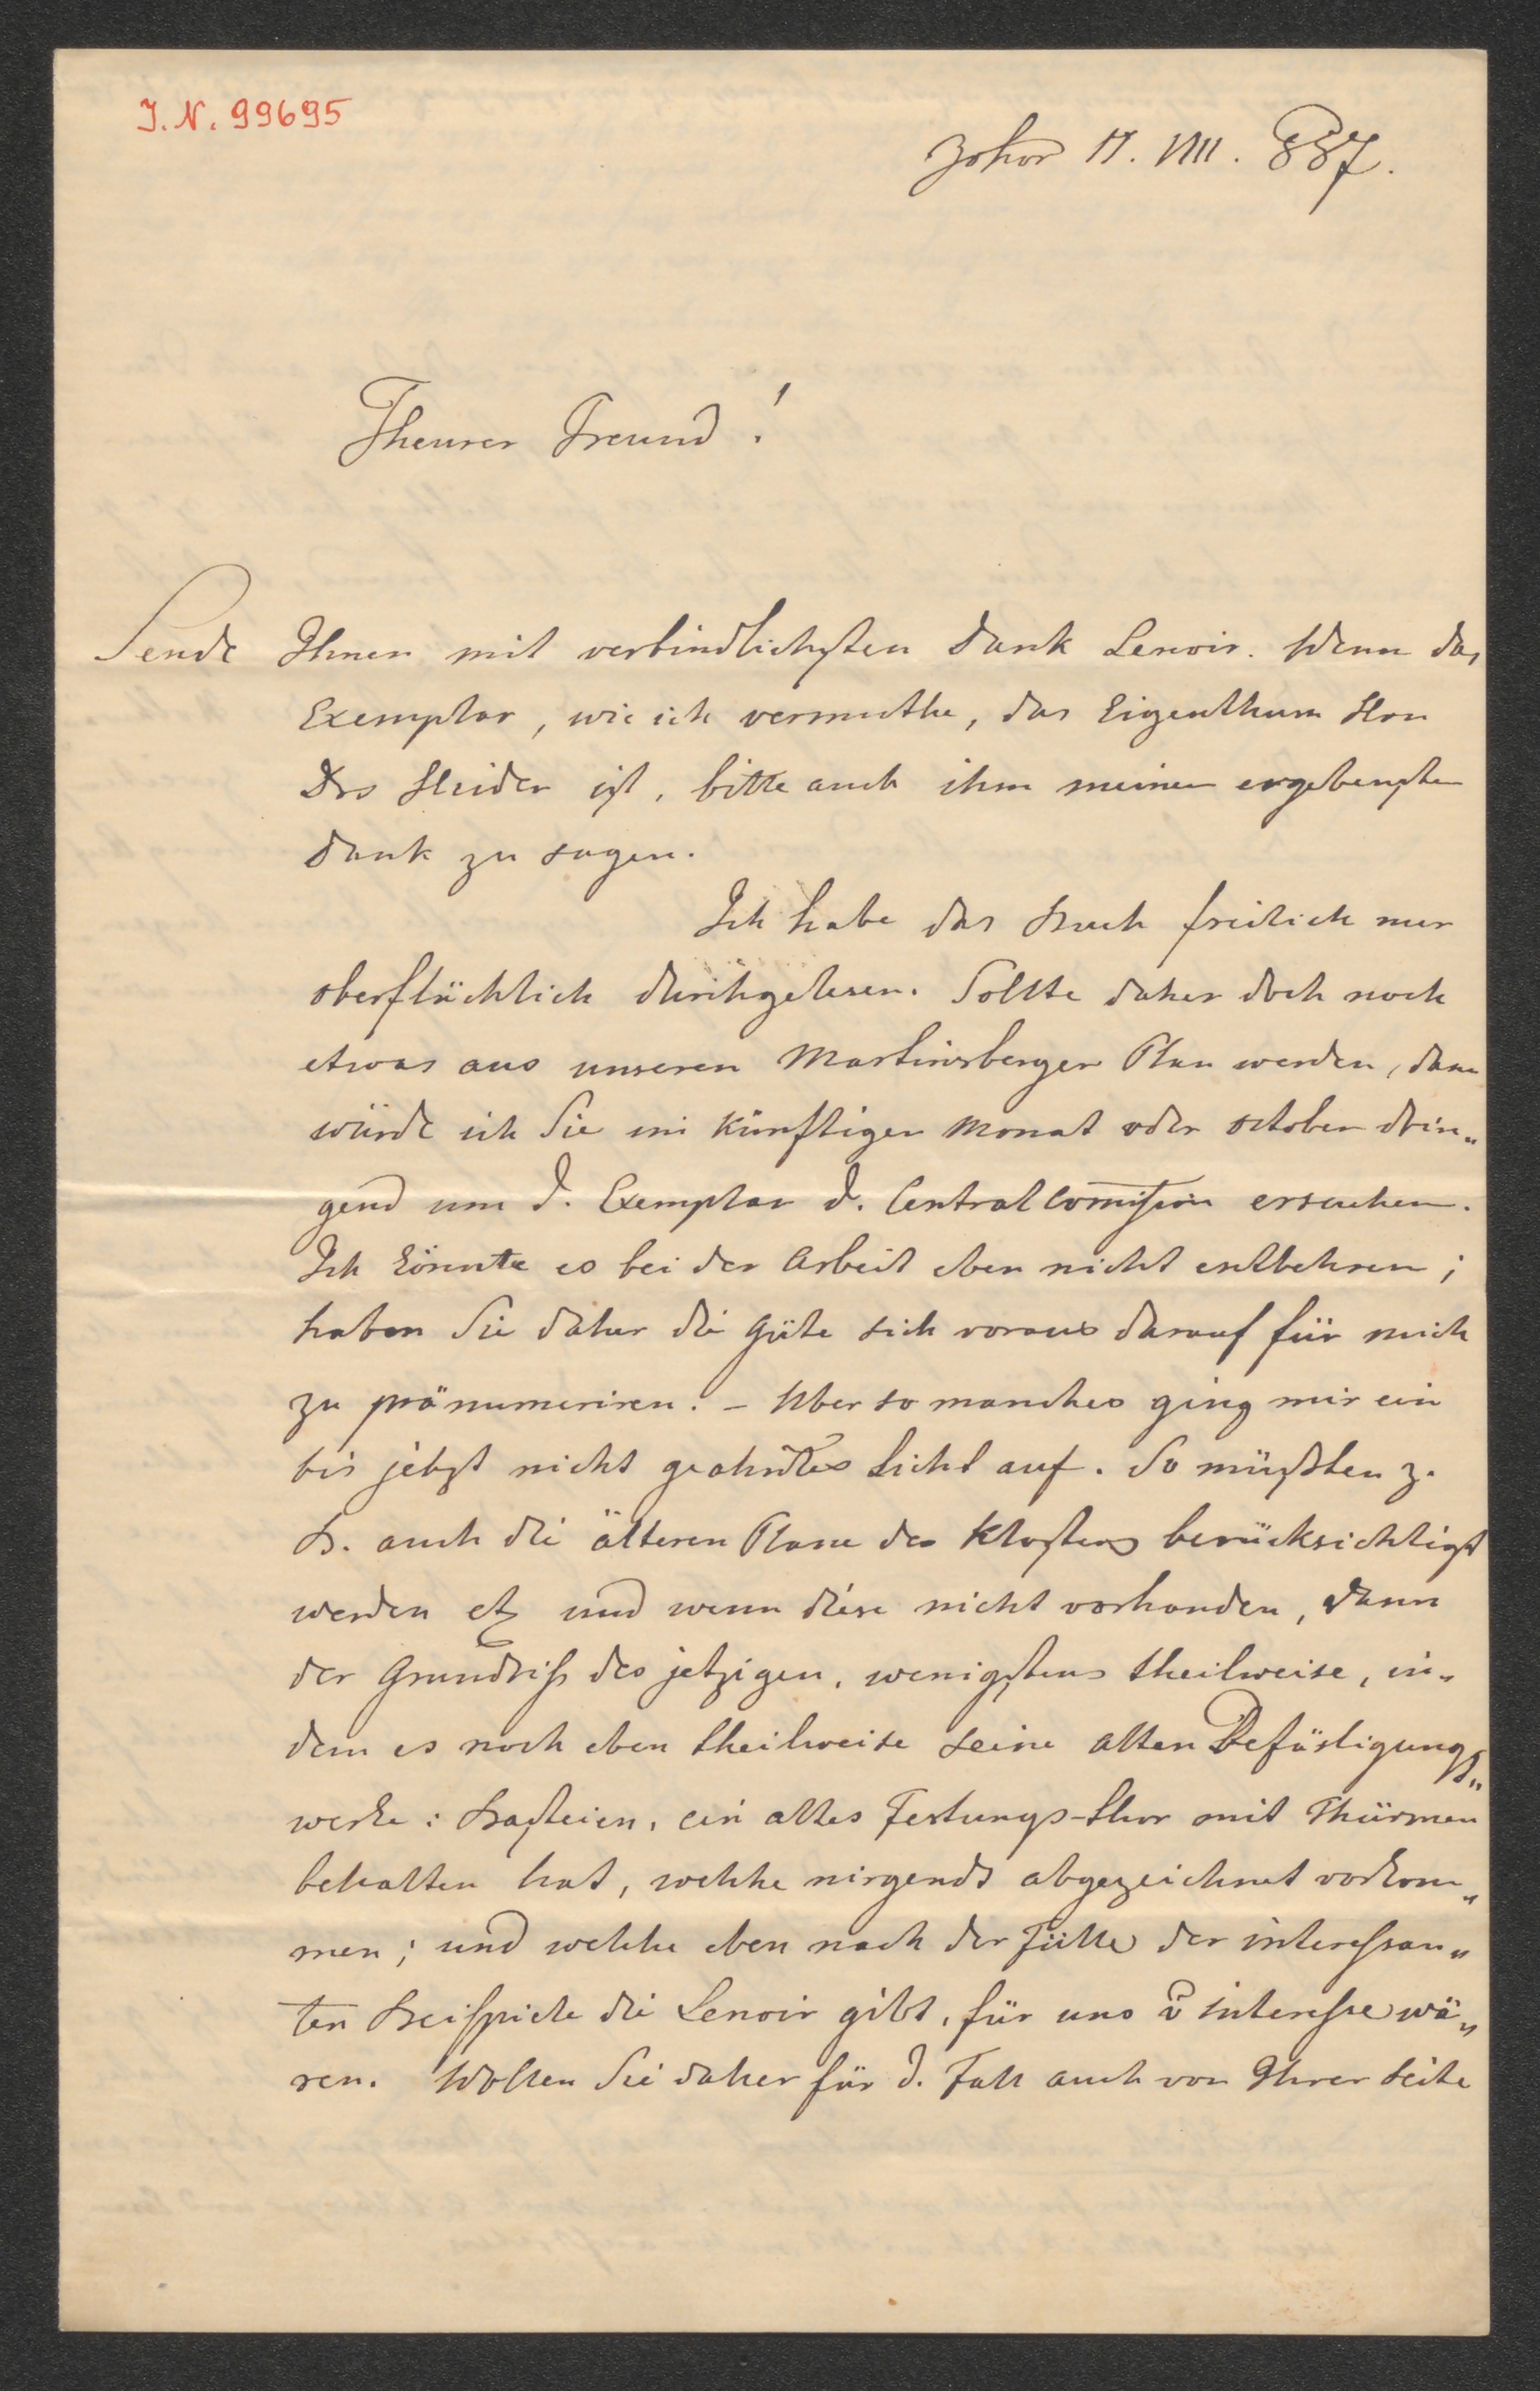 J. N. 99695
Zohor 17. VIII. 887.
Theurer Freund!
Sende Ihnen mit verbindlichsten Dank Lenoir. Wenn das
Exemplar, wie ich vermuthe, das Eigenthum Hrn
Drs Heider ist, bitte auch ihm meinen ergebensten
Dank zu sagen.
Ich habe das Buch freilich nur
oberflächlich durchgelesen. Sollte daher doch noch
etwas aus unseren Martinsberger Plan werden, dann
würde ich Sie im künftigen Monat oder October drin„
gend um d. Exemplar d. Central Com̅ißion ersuchen.
Ich könnte es bei der Arbeit eben nicht entbehren;
haben Sie daher die Güte sich voraus darauf für mich
zu pränumeriren. – Uber so manches ging mir ein
bis jetzt nicht geahntes Licht auf. So müßten z.
B. auch die älteren Plane des Klosters berücksichtigt
werden etz und wenn diese nicht vorhanden, dann
der Grundriß des jetzigen, wenigstens theilweise, in„
dem es noch eben theilweise seine alten Befästigungs„
werke: Basteien, ein altes Festungs-thor mit Thürmen
behalten hat, welche nirgends abgezeichnet vorkom„
men; und welche eben nach der Fülle der interessan„
ten Beispiele die Lenoir gibt, für uns v Interesse wä„
ren. Wollen Sie daher für d. Fall auch von Ihrer Seite